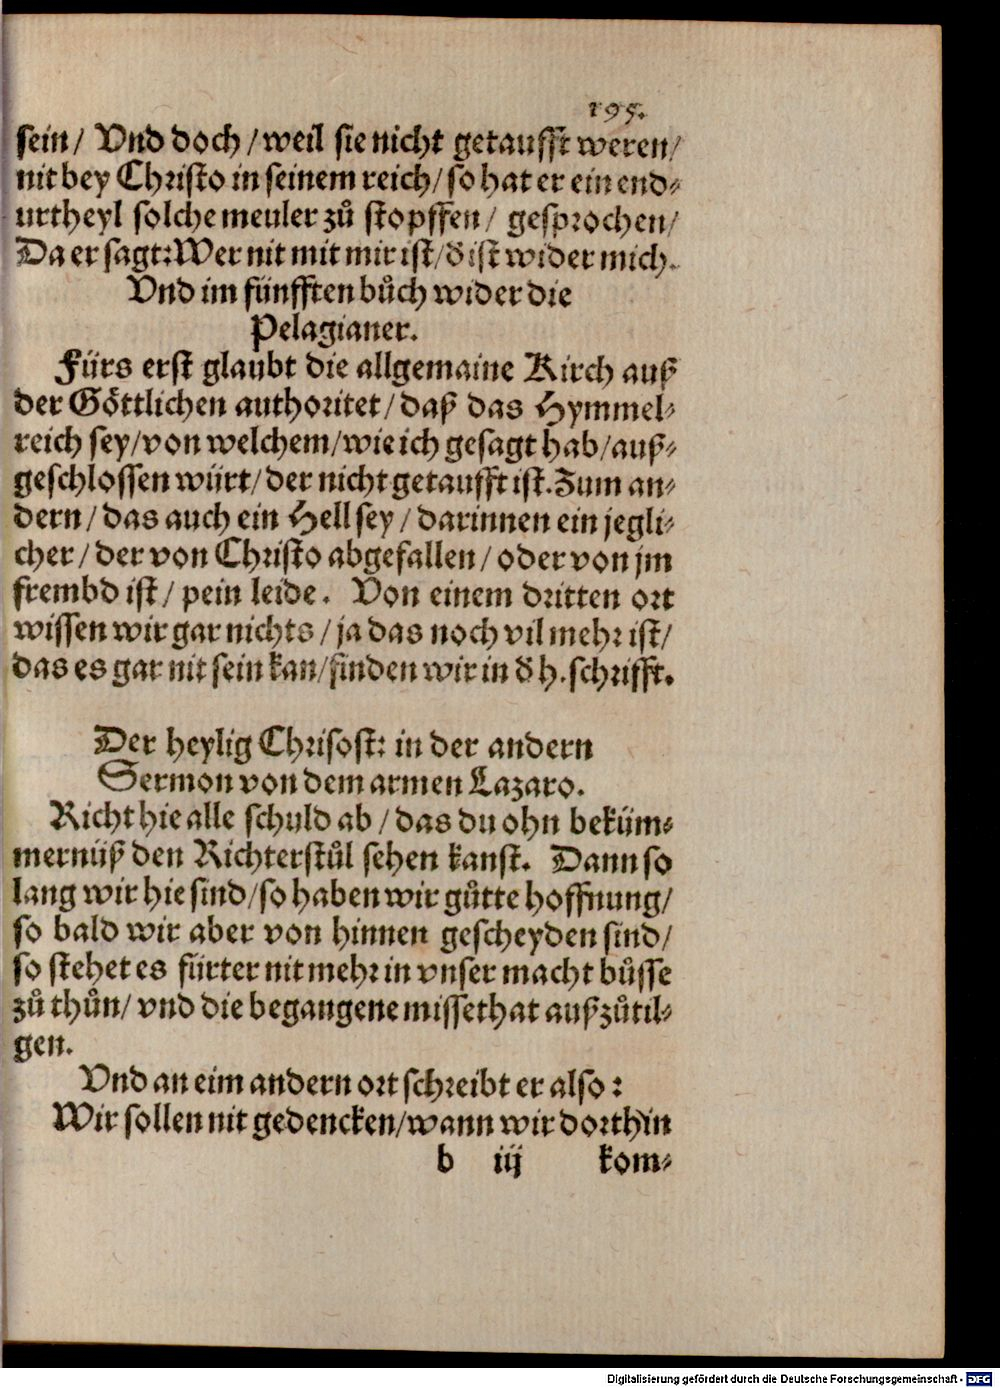 195.
sein/ Vnd doch/weil sie nicht getaufft weren/
nit bey Christo in seinem reich/so hat er ein end⸗
urtheyl solche meuler zů stopffen/ gesprochen/
Da er sagt: Wer nit mit mir ist/ď ist wider mich.
Vnd im fünfften bůch wider die
Pelagianer.
Fürs erst glaubt die allgemaine Kirch auß
der Göttlichen authoritet/daß das Hymmel⸗
reich sey/von welchem/wie ich gesagt hab/auß⸗
geschlossen würt/der nicht getaufft ist. Zum an⸗
dern/das auch ein Hell sey/darinnen ein jegli⸗
cher/der von Christo abgefallen/oder von jm
frembd ist/ pein leide. Von einem dritten ort
wissen wir gar nichts/ja das noch vil mehr ist/
das es gar nit sein kan/finden wir in ď h. schrifft.
Der heylig Chrisost: in der andern
Sermon von dem armen Lazaro.
Richt hie alle schuld ab/das du ohn beküm⸗
mernüß den Richterstůl sehen kanst. Dann so
lang wir hie sind/so haben wir gůtte hoffnung/
so bald wir aber von hinnen gescheyden sind/
so stehet es fürter nit mehr in vnser macht bůsse
zů thůn/ vnd die begangene missethat außzůtil⸗
gen.
Vnd an eim andern ort schreibt er also:
Wir sollen nit gedencken/wann wir dorthin
b iij kom⸗
Digitalisierung gefördert durch die Deutsche Forschungsgemeinschaft - DFG